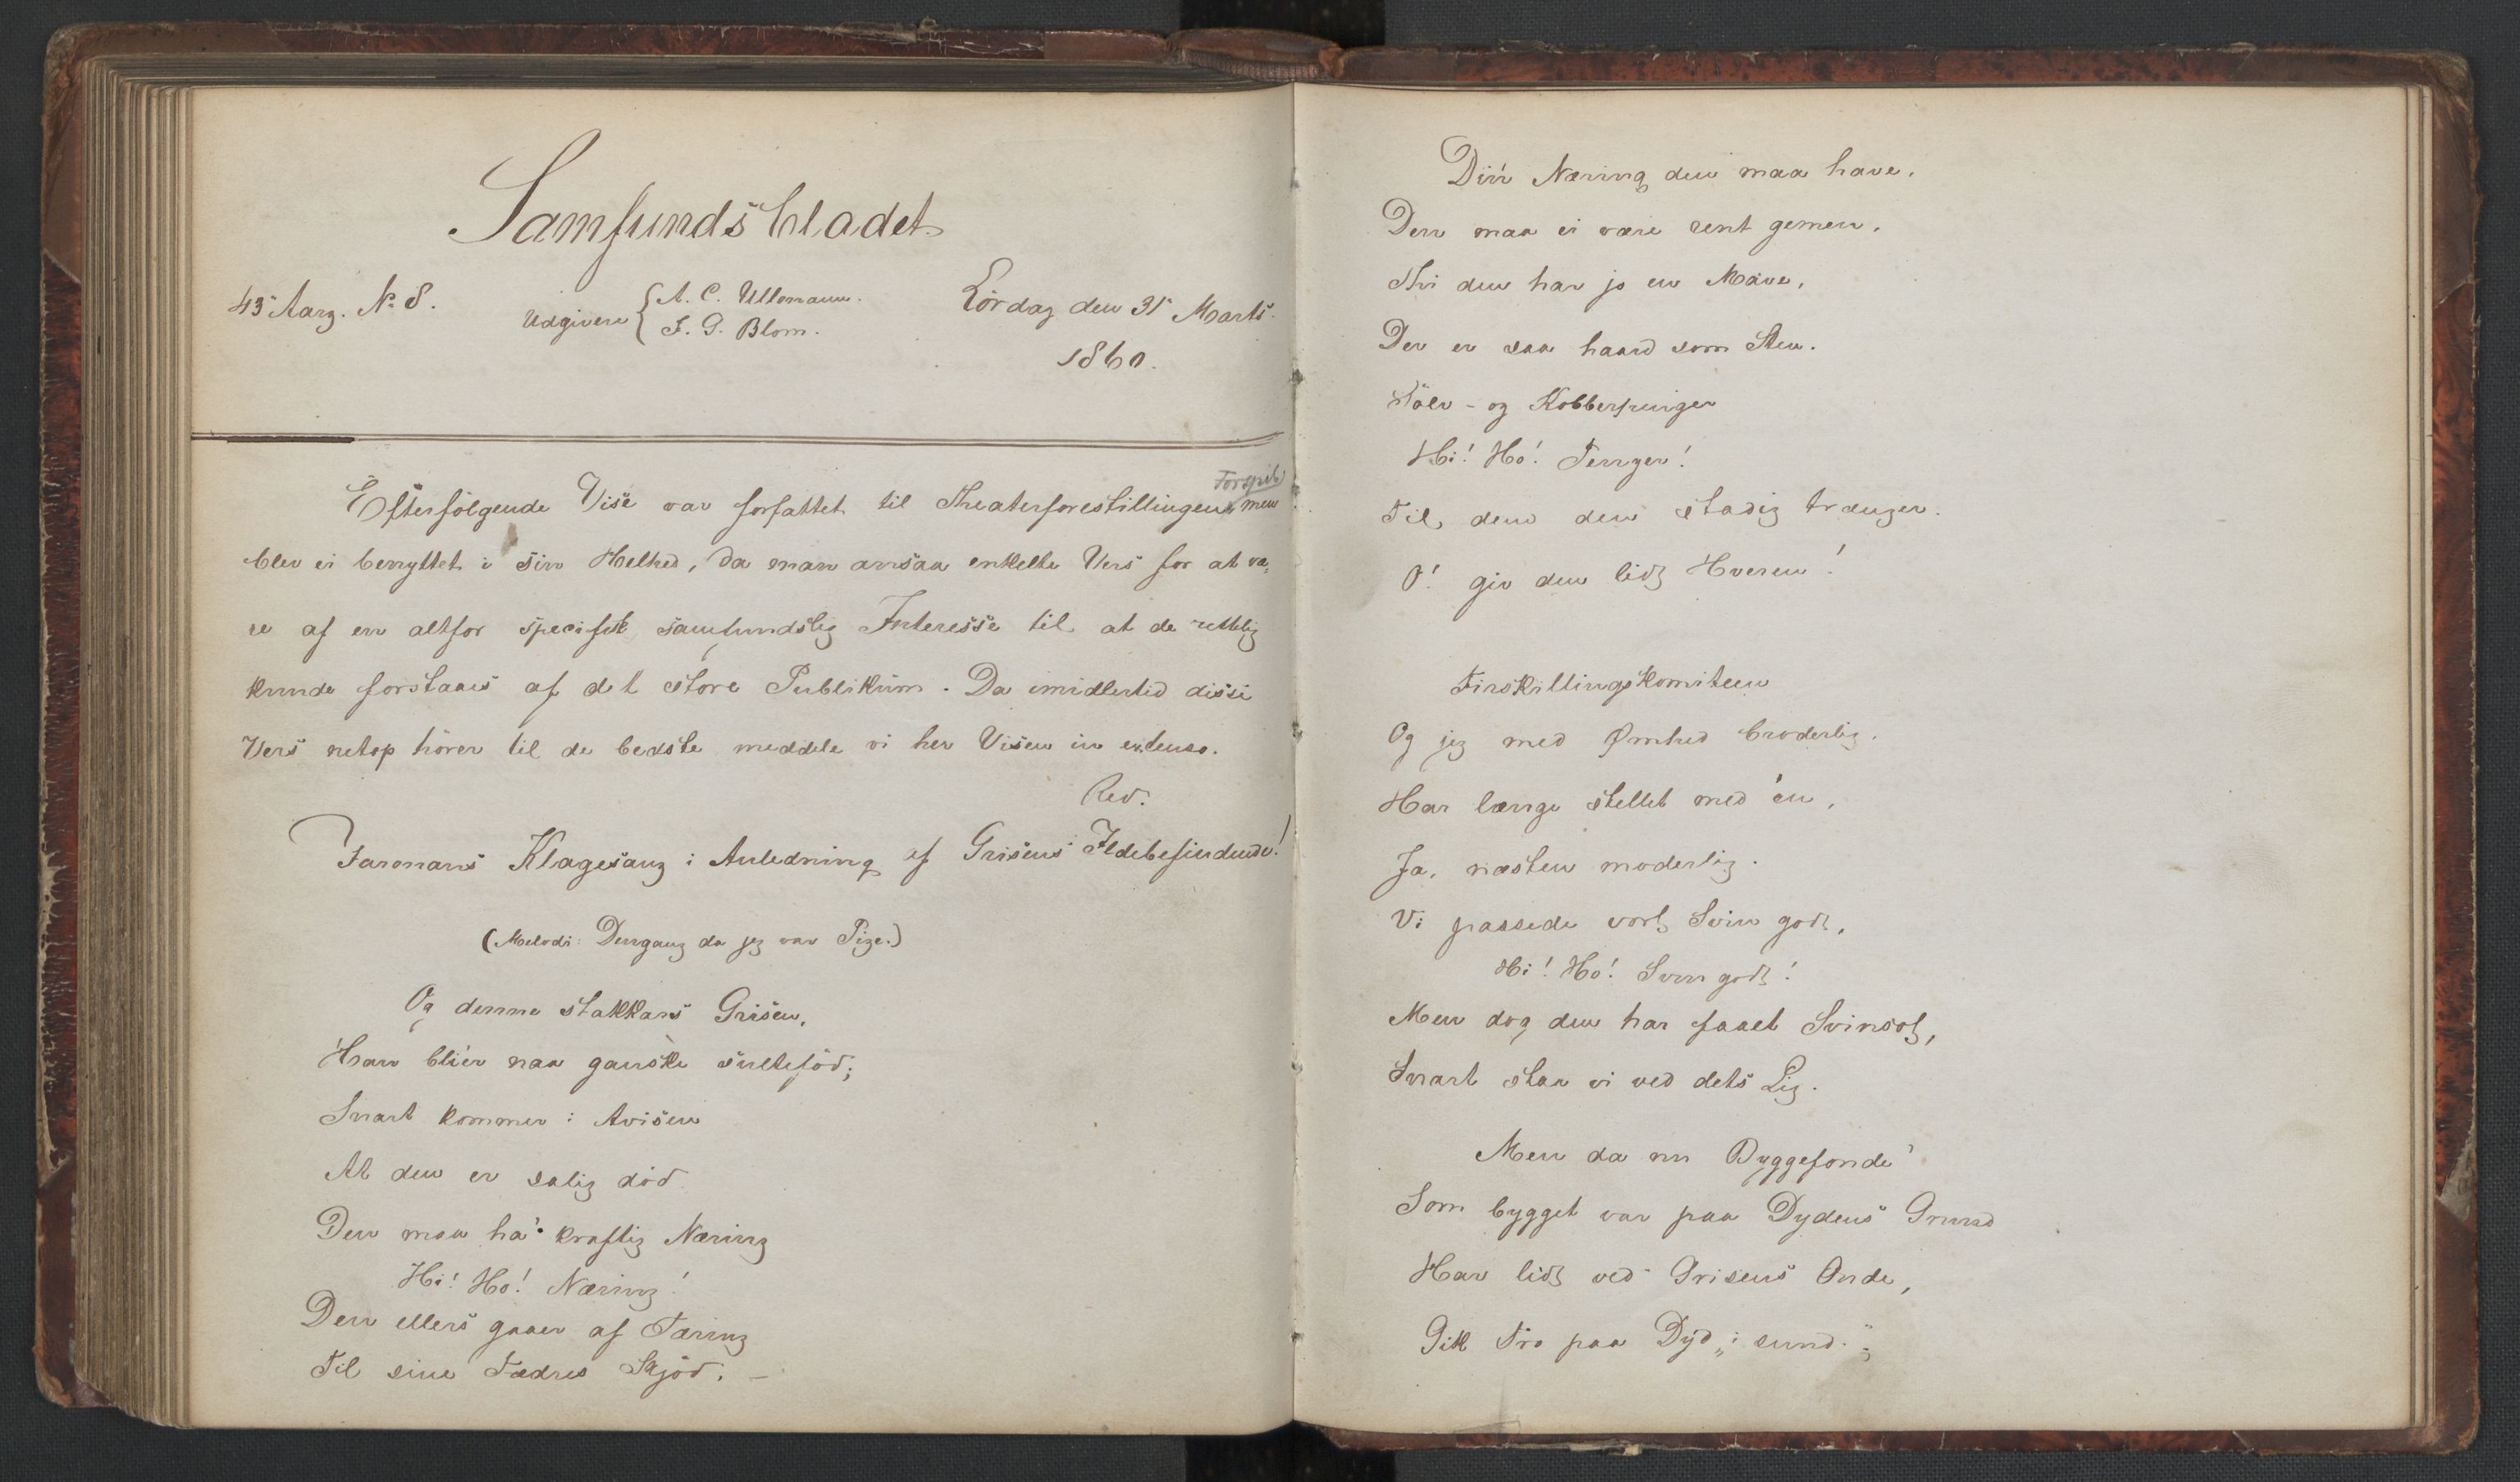 Samfundsbladet
43 Aarg. No 8.
Udgivere { A. C. Ullmann.
F. G. Blom.
Lördag den 31 Marts.
1860.
Forspil
Efterfölgende Vise var forfattet til Theaterforestillingens men
blev ei benyttet i sin Helhed, da man ansaa enkelte Vers for at væ-
re af en altfor specifik samfundslig Interesse til at de rettelig
kunde forstaaes af det store Publikum. Da imidlertid disse
Vers netop hörer til de bedste meddele vi her Visen in extenso.
Red.
Farmans Klagesang i Anledning af Grisens Ildebefindende!
(Melodi: Dengang da jeg var Pige.)
Og denne stakkars Grisen,
Han bli'er naa ganske sulteföd;
Snart kommer i Avisen
At den er salig död.
Den maa ha' kraftig Næring
Hi! Ho! Næring!
Den ellers gaaer af Tæring
Til sine Fædres Skjöd. –
Din Næring den maa have,
Den maa ei være rent gemen,
Thi den har jo en Mave,
Der er saa haard som Sten.
Sölv- og Kobberpenger
Hi! Ho! Penger!
Til dem den stadig trænger.
O! giv den lidt Hveren!
Firskillingskomiteen
Og jeg med Ømhed broderlig.
Har længe stellet med 'en,
Ja, næsten moderlig.
Vi passede vort Svin godt,
Hi! Ho! Svin godt!
Men dog den har faaet Svinsot,
Snart staa vi ved dets Lig.
Men da nu Byggefonde'
Som bygget var paa Dydens Grund
Har lidt ved Grisens Onde,
Gik Tro paa Dyd „i sund.“;